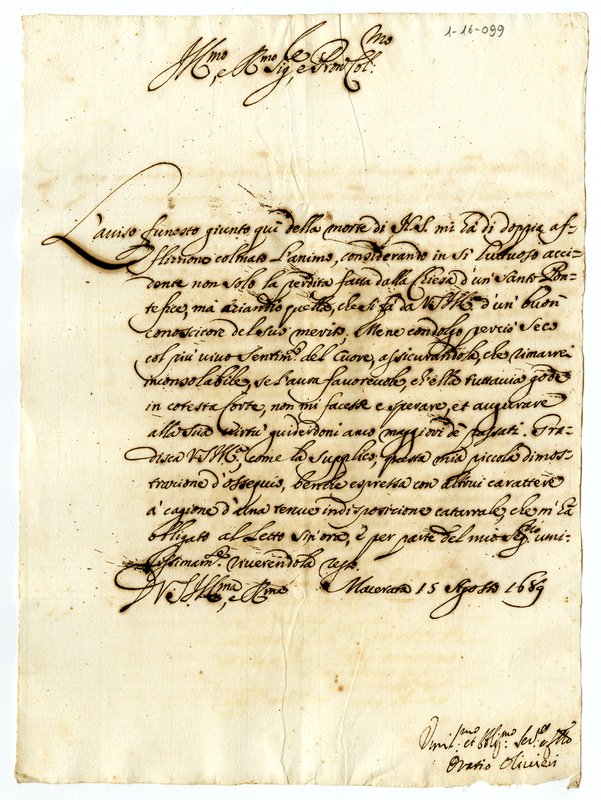 1-16-099
Ill.mo, e R.mo Sig.re, e Pron Col.mo
L'aviso funesto giunto quì della morte di N.S. mi hà di doppia af-
flizzione colmato l'animo, considerando in sì luttuoso acci-
dente non solo la perdita fatta dalla Chiesa d'un Santo Pon-
tefice, mà eziandio questa, che si fà da V.S. Ill.ma d'un buon
conoscitore del suo merito. Mene condoglio perciò Seco
col più vivo Sentim.to del Cuore, assicurandola, che rimarrei
inconsolabile, se l'aura favorevole, ch'ella tuttavia gode
in cotesta Corte, non mi facesse e sperare, et augurare
alla Sua virtù guiderdoni anco maggiori de passati. Gra-
disca V.S. Ill.ma, come la supplico, questa mia piccola dimos-
trazione d'ossequio, benche espressa con altrui carattere
à cagione d'una tenue indisposizione catarrale, che m'hà
obligato al Letto sin'ora, e per parte del mio umi-
lissimam.te riverendola resto
D V.S. Ill.ma, e R.ma Macerata 15 Agosto 1689
Umil.mo et Obblig.mo Ser.re
Oratio Olivieri